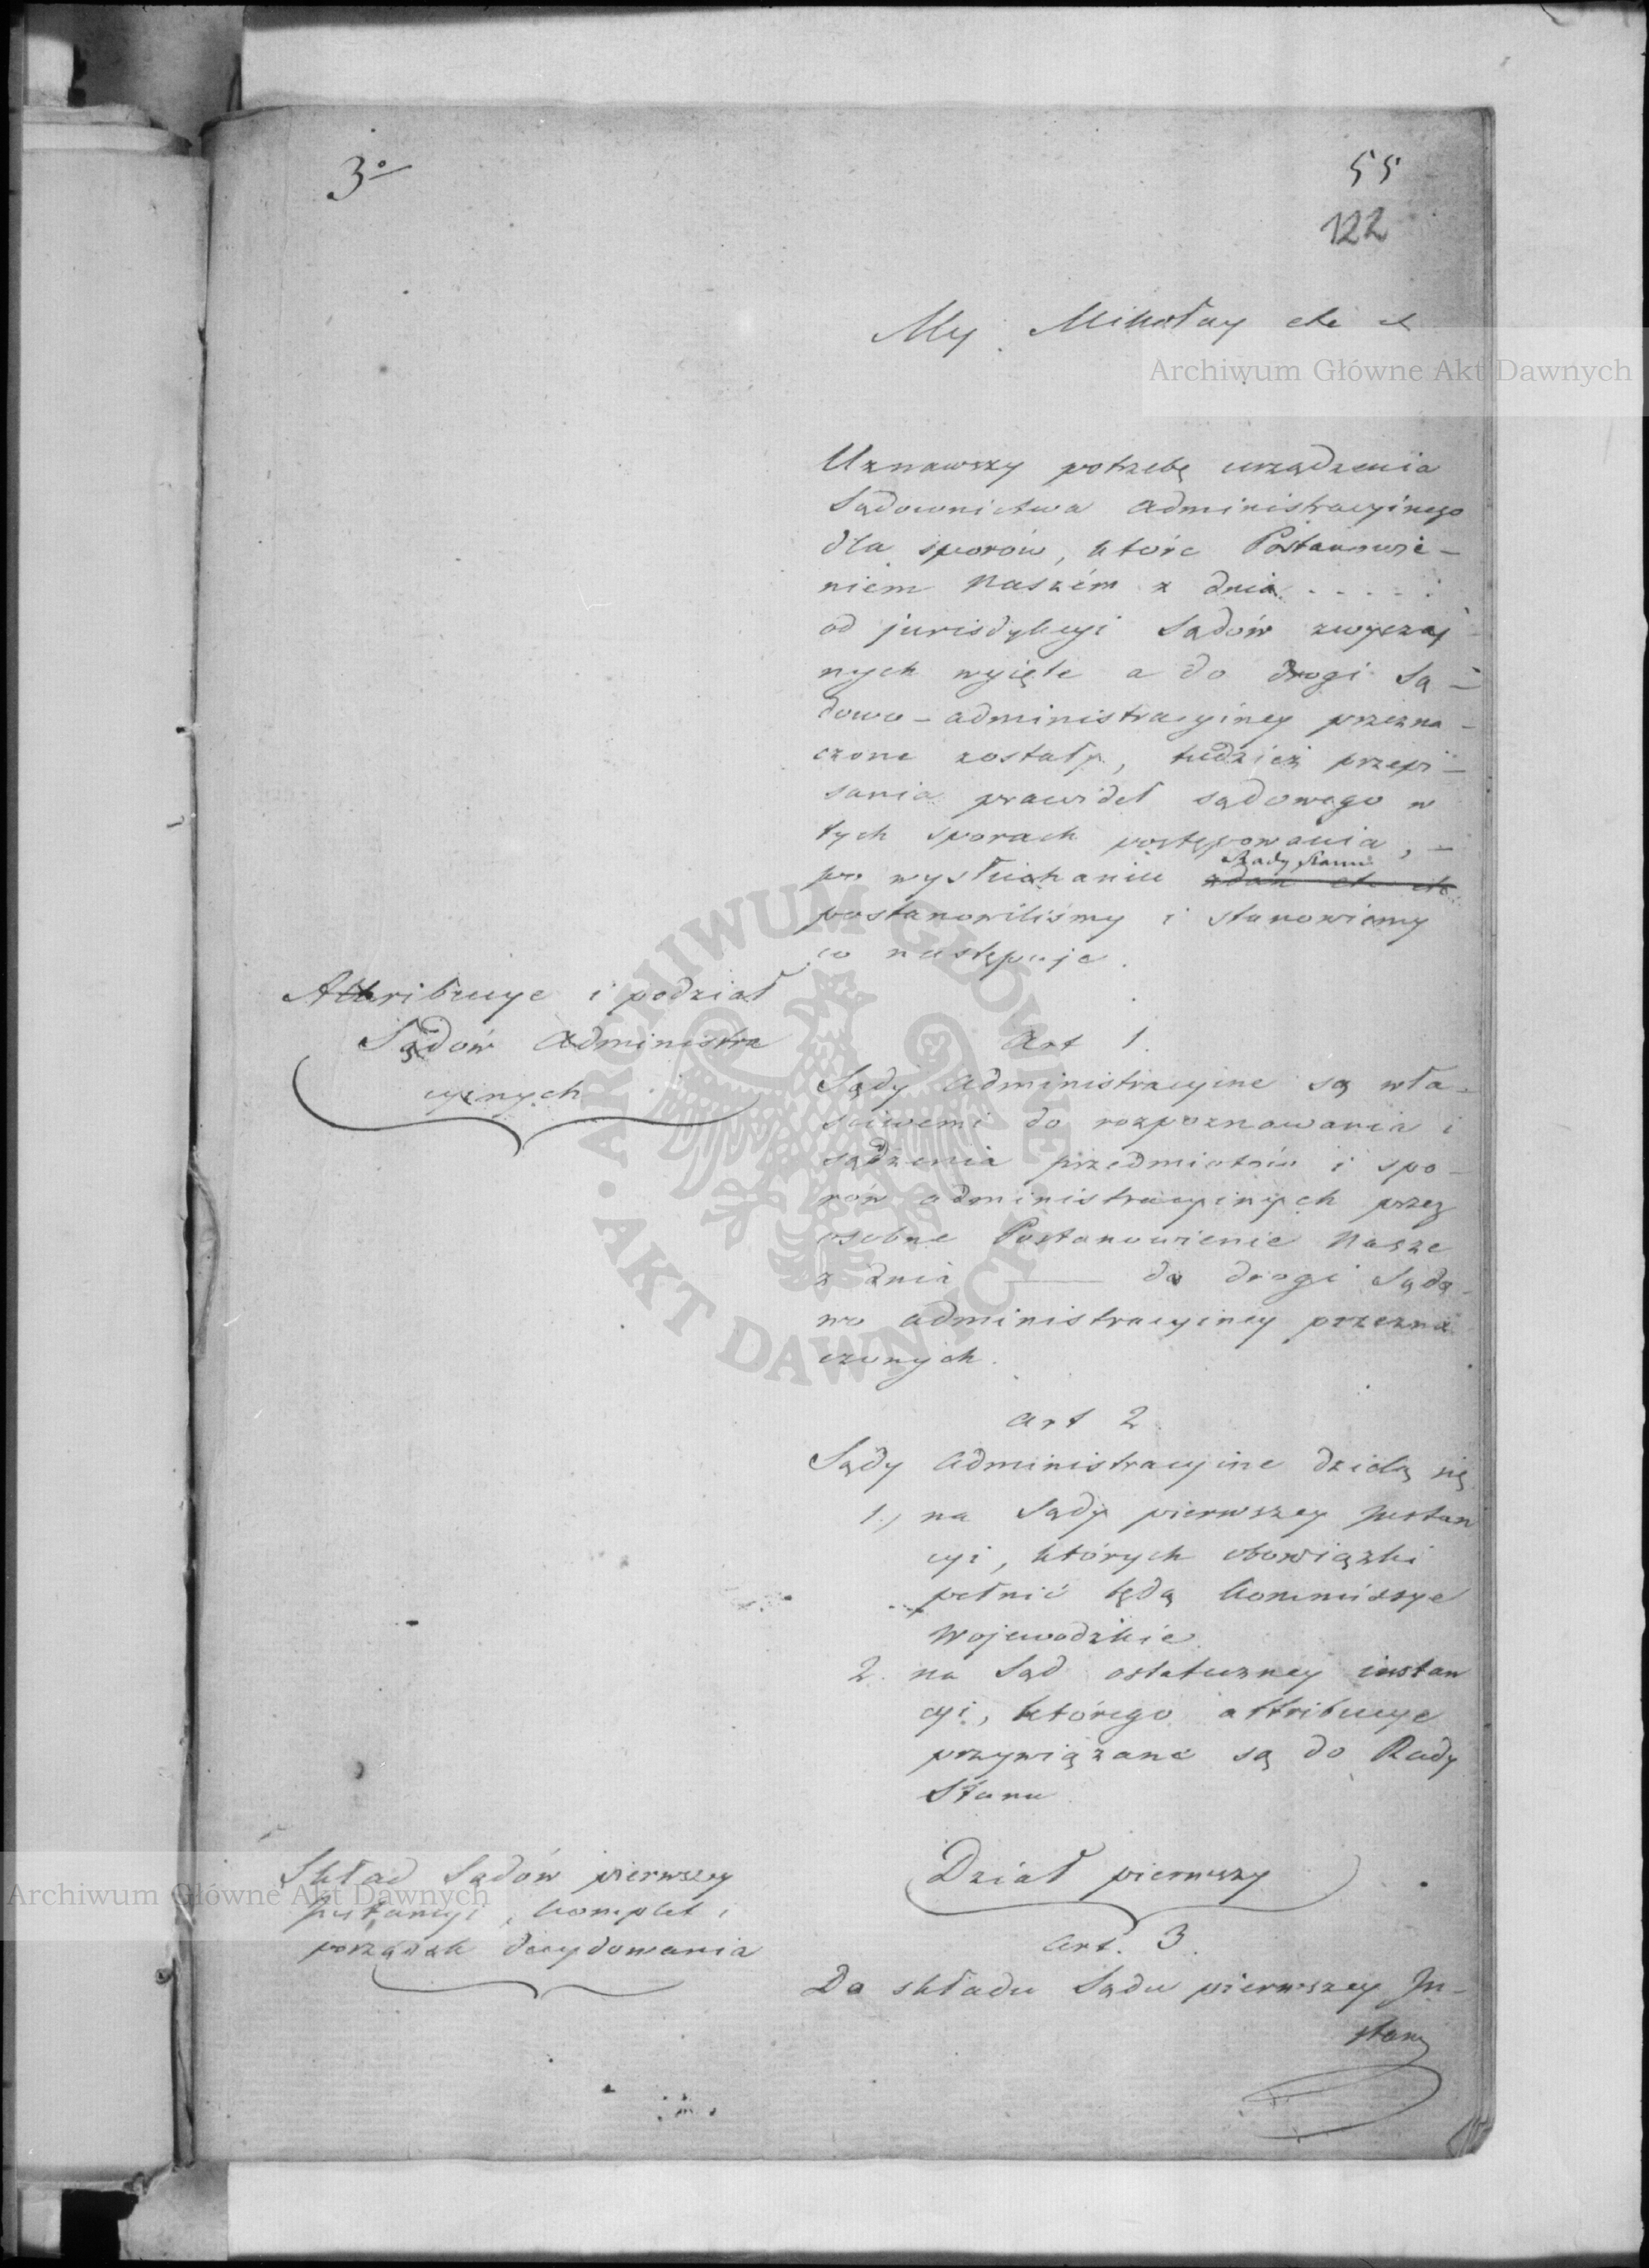 3o
55
122
My Mikołay etc etc
Uznawszy potrzebę urządzenia
Sądownictwa administracyinego
dla sporów, które Postanowie-
niem Naszém z dnia . . . . .
od jurisdykcyi Sądów zwyczaj-
nych wyięte a do drogi Są-
dowo-administracyiney przezna-
czone zostały, tudzież przepi-
sania prawideł sądowego w
tych sporach postępowania, -
Rady Stanu
po wysłuchaniu zdań etc etc
postanowiliśmy i stanowiemy
co następuje.
Attribucye i podział
Sądów Administra
cyinych
Art 1.
Sądy administracyine są wła-
sciwemi do rozpoznawania i
sądzenia przedmiotów i spo-
rów administracyinych przez
osobne Postanowienie Nasze
z dnia ——— do drogi Sądo-
wo administracyiney przezna
czonych.
Art 2.
Sądy administracyine dzielą się
1., na Sądy pierwszey Instan
cyi, których obowiązki
pełnić będą Kommissye
Wojewodzkie.
2. na Sąd ostateczney instan
cyi, którego attribucye
przywiązane są do Rady
Stanu.
Skład Sądów pierwszey
Instancyi, komplet i
porządek decydowania
Dział pierwszy
Art. 3.
Do składu Sądu pierwszey In-
stancy
Archiwum Główne Akt Dawnych
ARCHIWUM GŁÓWNE · AKT DAWNYCH ·
Archiwum Główne Akt Dawnych